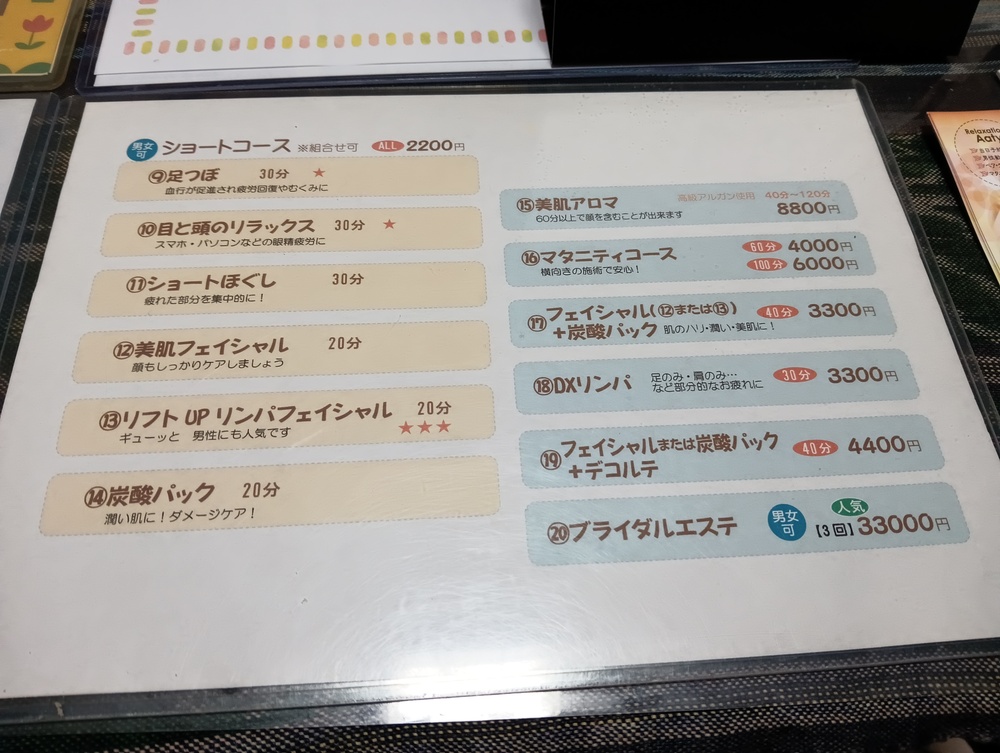 男女可 ショートコース ※組合せ可 ALL 2200円
⑨足つぼ 30分 ★
血行が促進され疲労回復やむくみに
⑩目と頭のリラックス 30分 ★
スマホ・パソコンなどの眼精疲労に
⑪ショートほぐし 30分
疲れた部分を集中的に!
⑫美肌フェイシャル 20分
顔もしっかりケアしましょう
⑬リフトUPリンパフェイシャル 20分
ギューッと 男性にも人気です ★★★
⑭炭酸パック 20分
潤い肌に!ダメージケア!
⑮美肌アロマ 高級アルガン使用 40分~120分
60分以上で顔を含むことが出来ます 8800円
⑯マタニティコース 60分 4000円
横向きの施術で安心! 100分 6000円
⑰フェイシャル(⑫または⑬) 40分 3300円
+炭酸パック 肌のハリ・潤い・美肌に!
⑱DXリンパ 足のみ・肩のみ… 30分 3300円
など部分的なお疲れに
⑲フェイシャルまたは炭酸パック 40分 4400円
+デコルテ
⑳ブライダルエステ 男女可 人気 【3回】33000円
Relaxatio
Aaty